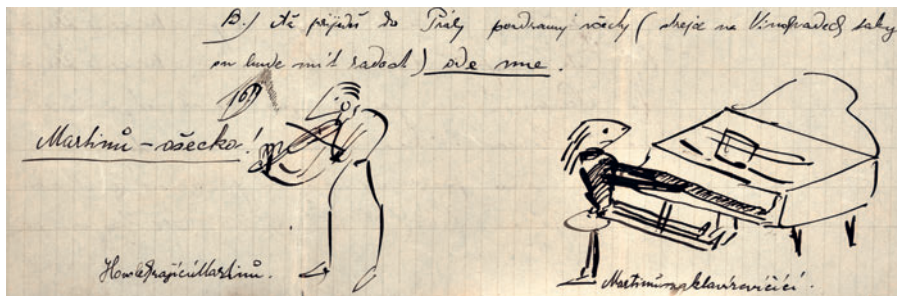 B.) Až přijdeš do Prahy pozdravuj všechny ( strejce na Vinohradech taky
on bude mít radost ) ode mne.
Martinů – všecko!
Houslehrající Martinů.
Martinů na klavír cvičící.